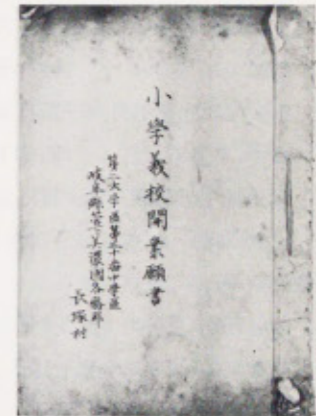 小學義校開業願書
第二大学區第三十番中學區
岐阜縣管下美濃國各務郡
長塚村